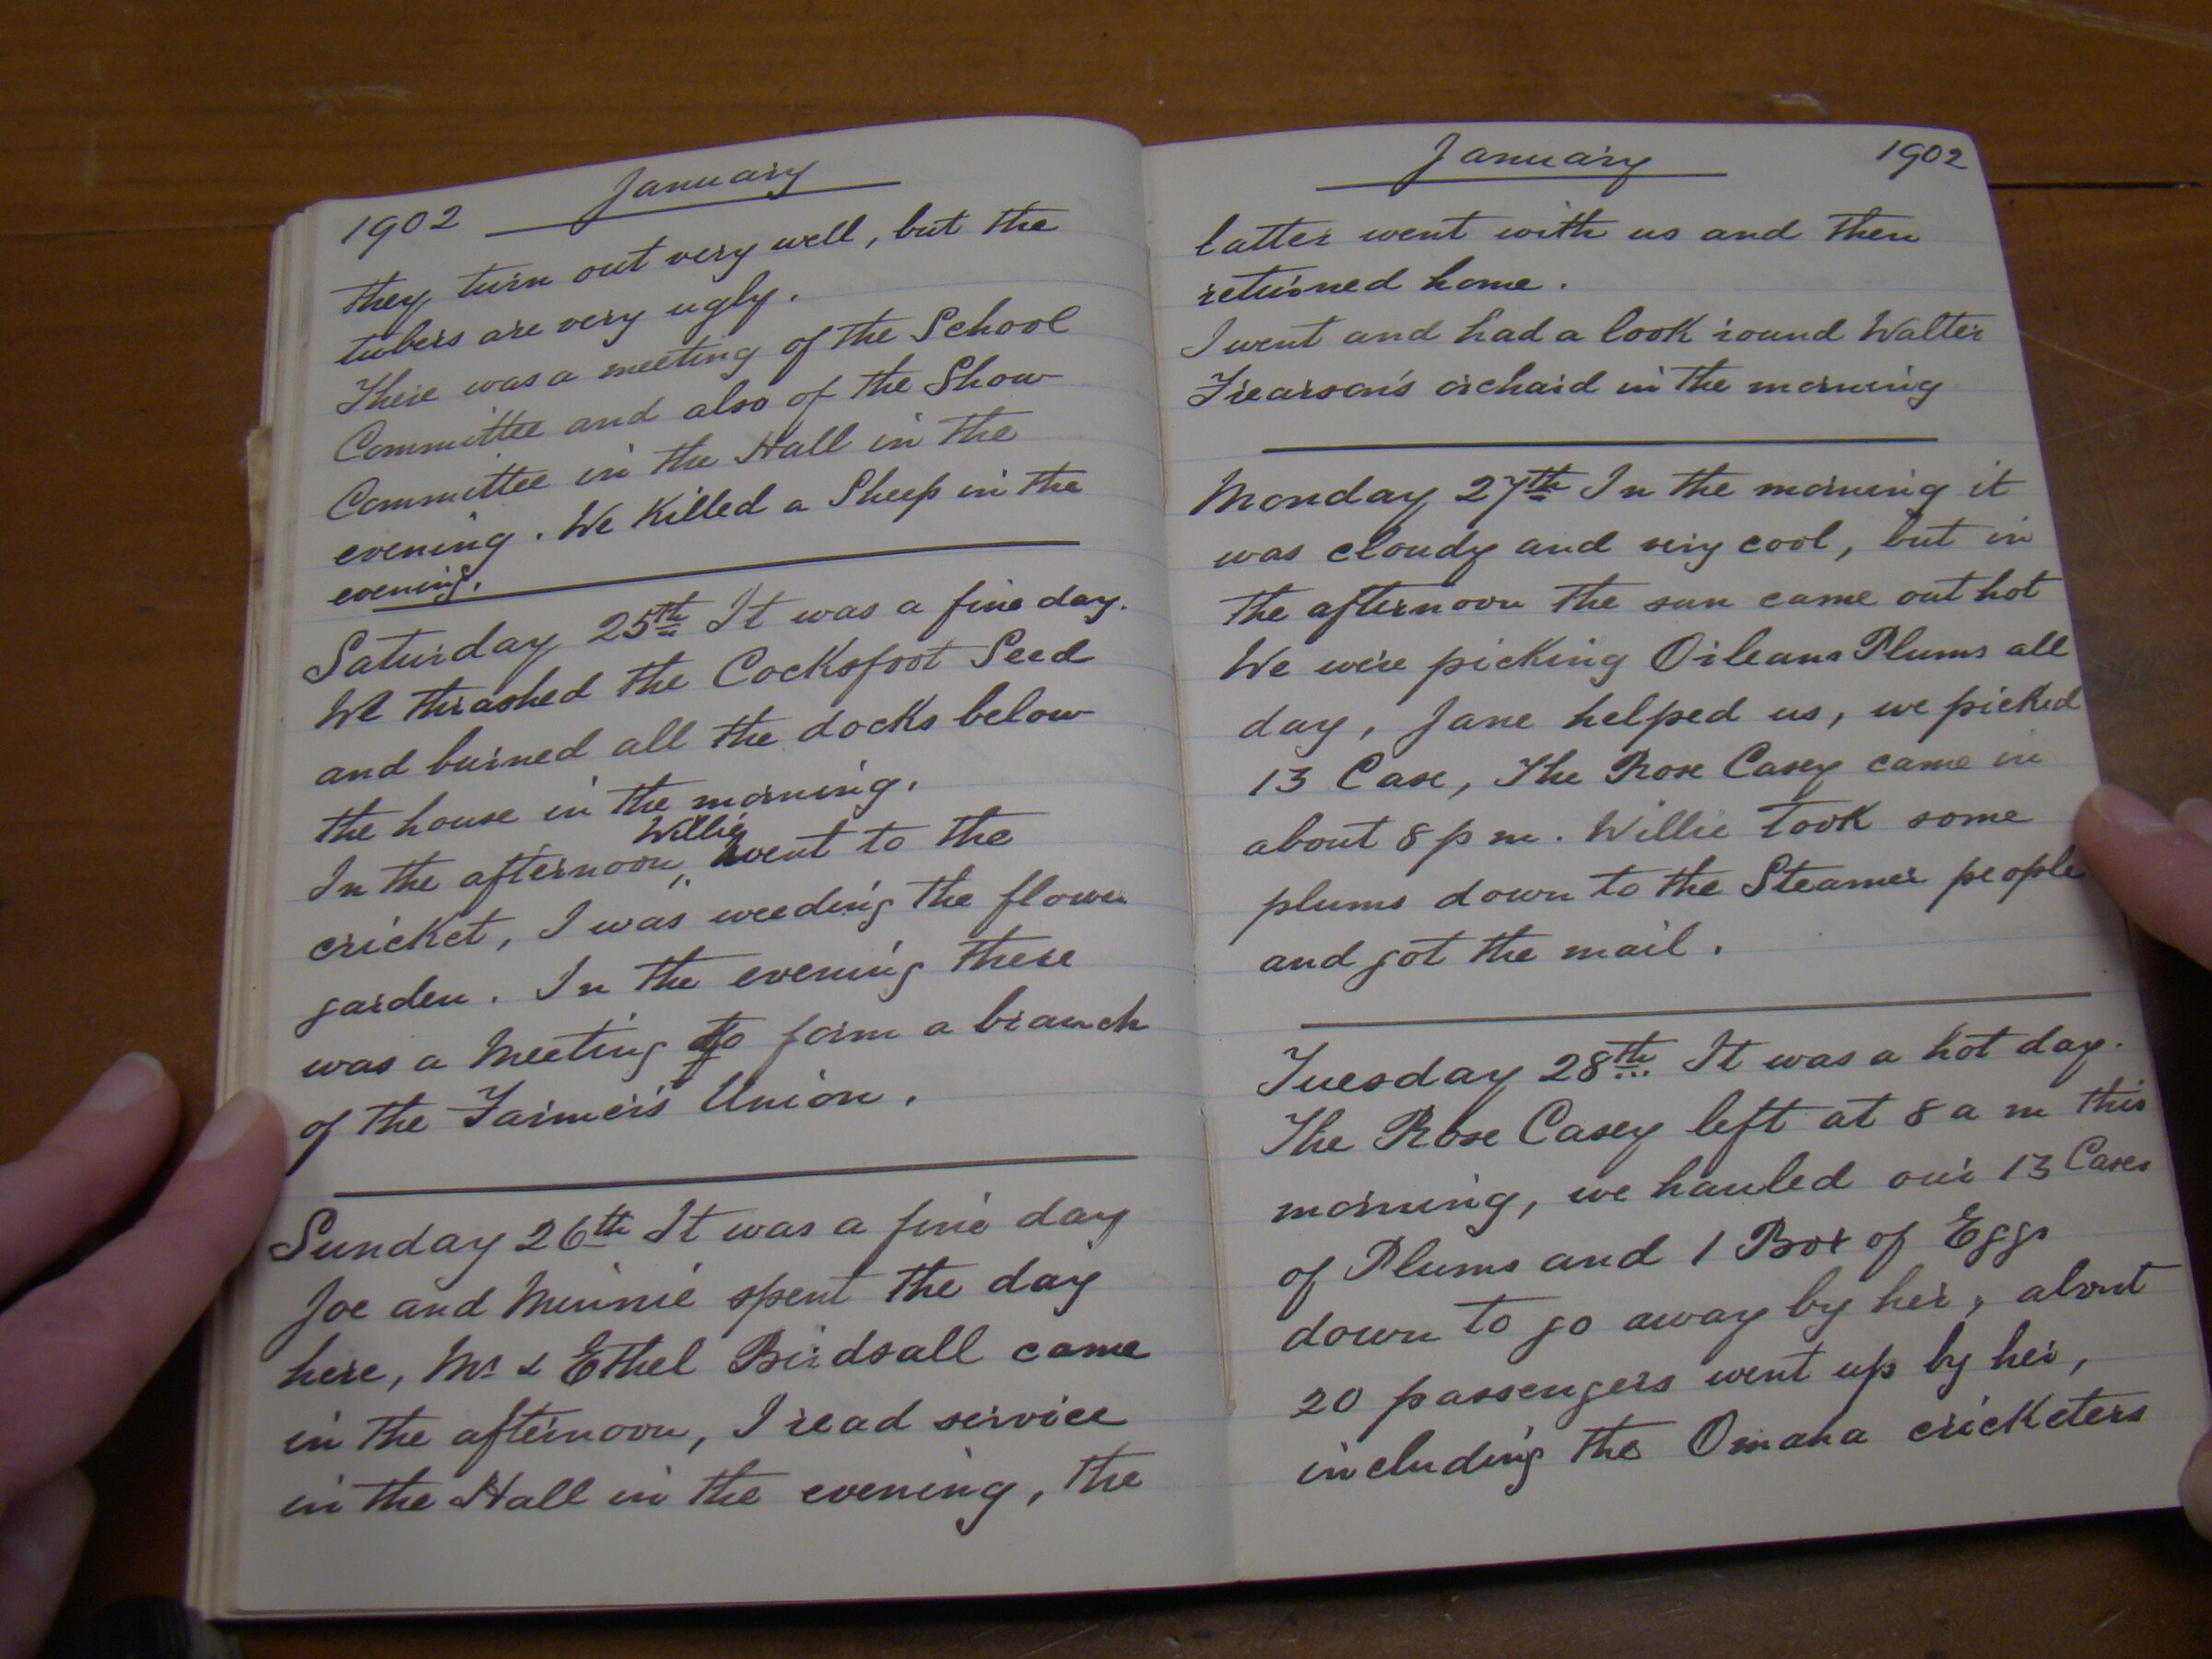 1902 January
they turn out very well, but the
tubers are very ugly.
There was a meeting of the School
Committee and also of the Show
Committee in the Hall in the
evening. We Killed a Sheep in the
evening.
Saturday 25th It was a fine day.
We thrashed the Cocksfoot Seed
and burned all the docks below
the house in the morning.
Willie
In the afternoon, went to the
cricket, I was weeding the flower
garden. In the evening there
was a Meeting to form a branch
of the Farmer's Union.
Sunday 26th It was a fine day
Joe and Minnie spent the day
here, Mr & Ethel Birdsall came
in the afternoon, I read service
in the Hall in the evening, the
January 1902
latter went with us and then
returned home.
I went and had a look round Walter
Frearson's orchard in the morning
Monday 27th In the morning it
was cloudy and very cool, but in
the afternoon the sun came out hot
We were picking Orleans Plums all
day, Jane helped us, we picked
13 Case, The Rose Casey came in
about 8 p m. Willie took some
plums down to the Steamer people
and got the mail.
Tuesday 28th It was a hot day.
The Rose Casey left at 8 a m this
morning, we hauled our 13 Cases
of Plums and 1 Box of Eggs
down to go away by her, about
20 passengers went up by her,
including the Omaha cricketers